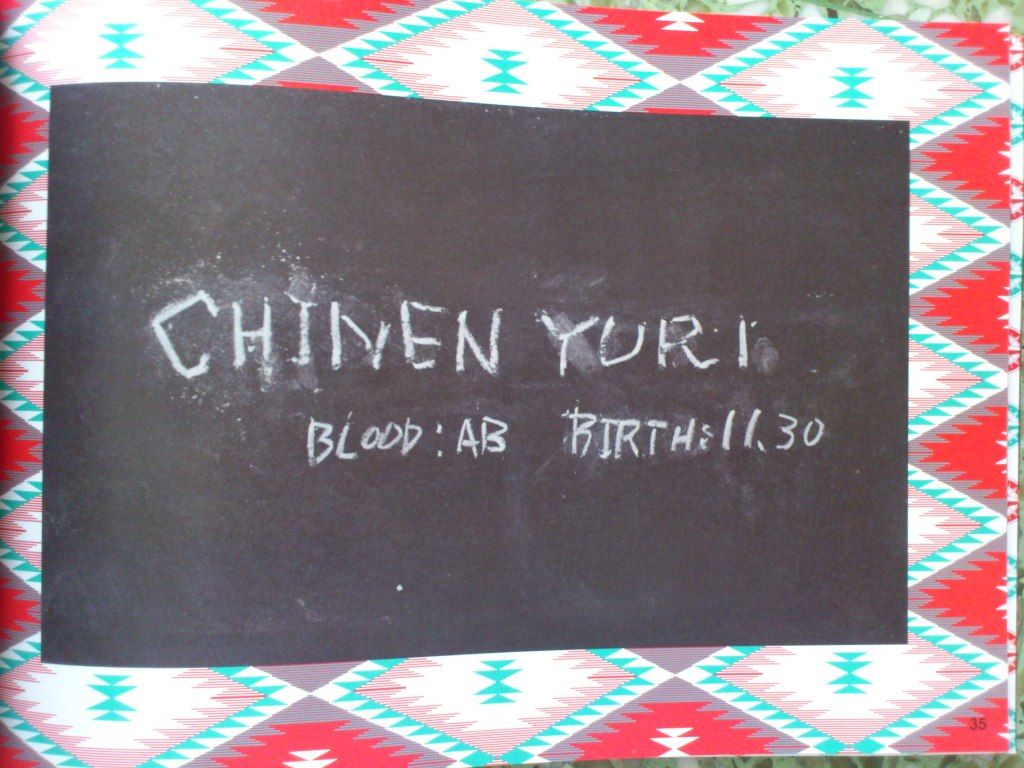 CHINEN YURI
BLOOD: AB BIRTH: 11.30
35